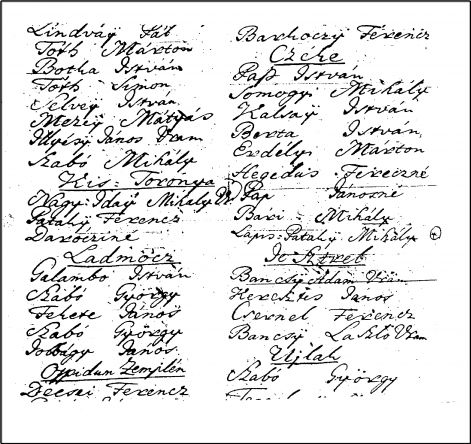 Lindvaÿ Pál
Tóth Márton
Botha István
Tóth Simon
Selveÿ István
Mezeÿ Mátÿás
Illyésÿ János Uram
Szabó Mihálÿ
Kis Toronya
Nagy Idaÿ Mihalÿ Ur.
Patalÿ Ferencz
Darócziné
Ladmócz
Galambo István
Szabó Györgÿ
Fekete János
Szabó Györgÿ
Jobbágÿ János
Oppidum Zemplén
Décsei Ferencz
Barkoczÿ Ferencz
Czéke
Pap István
Somogyi Mihálÿ
Kalsaÿ István
Berta István
Erdélyi Márton
Hegedüs Ferenczné
Pap Jánosné
Bári Mihálÿ
Lapis Patalÿ Mihálÿ
Bancsÿ Adam Uram
János
Csernel Ferencz
Bancsÿ László Uram
Ujlak
Szabó Györgÿ